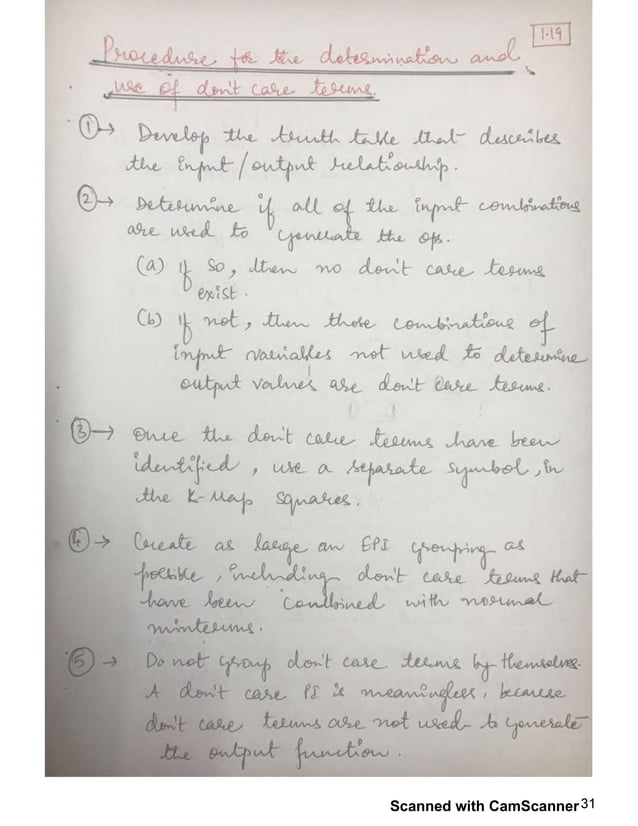 1-19
Procedure for the determination and
use of don't care terms.
① → Develop the truth table that describes
the input / output relationship.
② → Determine if all of the input combinations
are used to generate the ops.
(a) If so, then no don't care terms
exist.
(b) If not, then those combinations of
input variables not used to determine
output values are don't care terms.
③ → Once the don't care terms have been
identified, use a separate symbol, in
the K-Map squares.
④ → Create as large an EPI grouping as
possible, including don't care terms that
have been combined with normal
minterms.
⑤ → Do not group don't care terms by themselves.
A don't care PI is meaningless, because
don't care terms are not used to generate
the output function.
Scanned with CamScanner 31